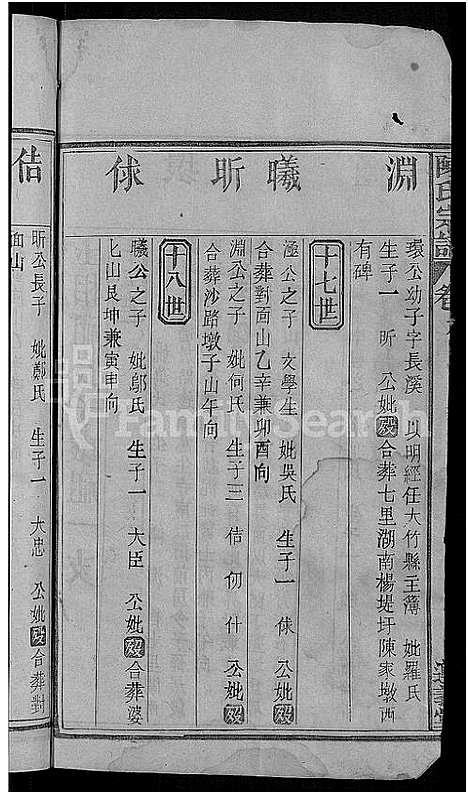 陳氏宗譜 卷
淵
環公幼子字長溪 以明經任大竹縣主簿 妣羅氏
生子一 昕 公妣歿合葬七里湖南楊堤圩陳家墩西
有碑
十七世
曦
淫公之子 文學生 妣吳氏 生子一 俅 公妣歿
合葬對面山乙辛兼卯酉向
昕
淵公之子 妣何氏 生子三 佶 仞 什 公妣歿
合葬沙路墩子山午向
十八世
俅
曦公之子 妣鄔氏 生子一 大臣 公妣歿合葬婆
匕山艮坤兼寅申向
佶
昕公長子 妣鄭氏 生子一 大忠 公妣歿合葬對
面山
FamilySearch